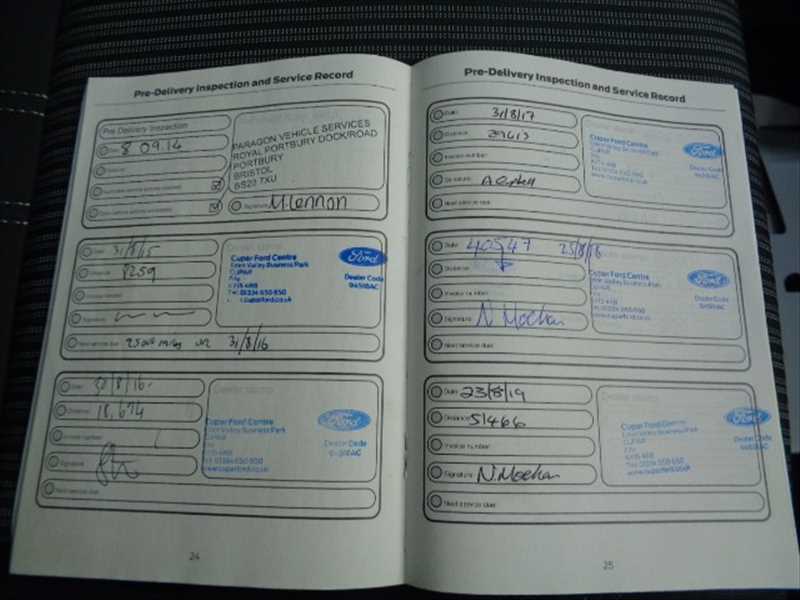 Pre-Delivery Inspection and Service Record
Pre Delivery Inspection
Date 8 09.14
PARAGON VEHICLE SERVICES
ROYAL PORTBURY DOCK/ROAD
PORTBURY
BRISTOL
BS20 7XU
Signature M.Lennon
Date 31/8/15
Distance 8259
Signature
Next service due 25000 miles or 31/8/16
Cupar Ford Centre
Eden Valley Business Park
CUPAR
Fife
KY15 4RB
Tel: 01334 650 650
Ford
Dealer Code
Date 30/8/16
Distance 18,674
Invoice number
Signature
Next service due
Dealer stamp
Cupar Ford Centre
Eden Valley Business Park
CUPAR
Fife
KY15 4RB
Tel: 01334 650 650
www.cuparford.co.uk
Ford
Dealer Code
24
Pre-Delivery Inspection and Service Record
Date 31/8/17
Distance
Invoice number
Signature
Next service due
Cupar Ford Centre
Eden Valley Business Park
CUPAR
Fife
KY15 4RB
Ford
Dealer Code
Date 40547 25/8/18
Distance
Invoice number
Signature N Meehan
Next service due
Cupar Ford Centre
Eden Valley Business Park
CUPAR
Fife
KY15 4RB
Tel: 01334 650 650
Ford
Dealer Code
Date 23/8/19
Distance 51466
Invoice number
Signature N.Meehan
Next service due
Dealer stamp
Cupar Ford Centre
Eden Valley Business Park
CUPAR
Fife
KY15 4RB
Tel: 01334 650 650
www.cuparford.co.uk
Ford
Dealer Code
25